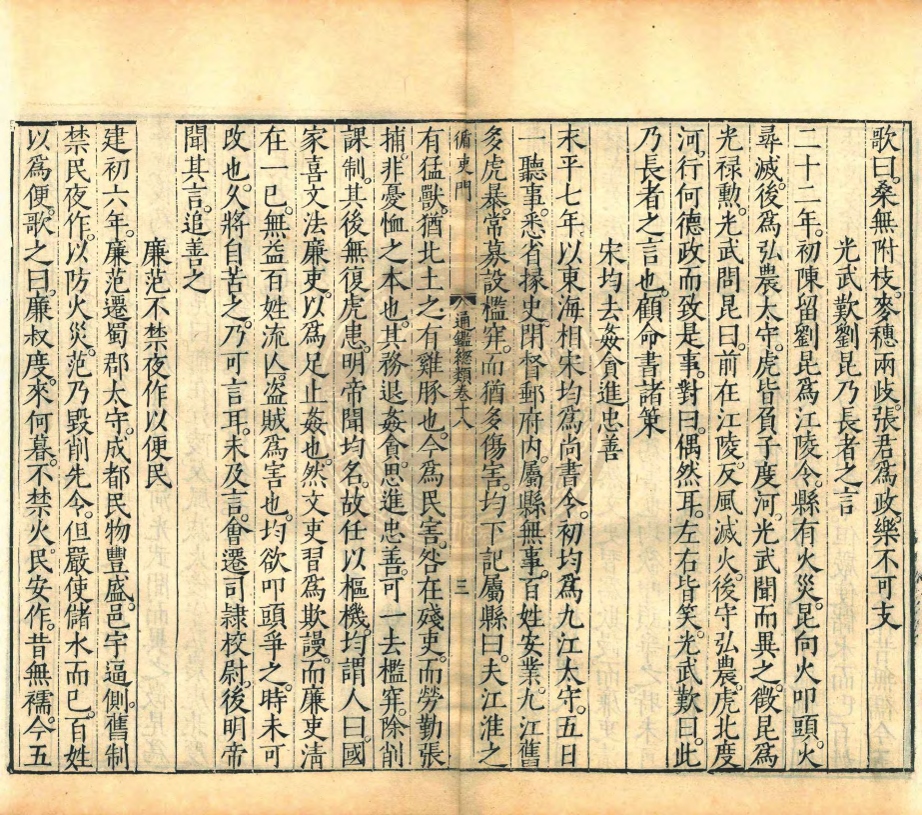 歌曰。桑無附枝。麥穗兩歧。張君爲政。樂不可支
光武歎劉昆乃長者之言
二十二年。初陳留劉昆爲江陵令。縣有火災。昆向火叩頭。火
尋滅。後爲弘農太守。虎皆負子度河。光武聞而異之。徵昆爲
光祿勲。光武問昆曰。前在江陵。反風滅火。後守弘農。虎北度
河。行何德政而致是事。對曰。偶然耳。左右皆笑。光武歎曰。此
乃長者之言也。顧命書諸策
宋均去姦貪進忠善
末平七年。以東海相宋均爲尚書令。初均爲九江太守。五日
一聽事。悉省掾史。閉督郵府內。屬縣無事。百姓安業。九江舊
多虎暴。常募設檻穽。而猶多傷害。均下記屬縣曰。夫江淮之
循吏門
通鑑總類卷十八
三
有猛獸。猶北土之有雞豚也。今爲民害。咎在殘吏。而勞勤張
捕。非憂恤之本也。其務退姦貪。思進忠善。可一去檻穽。除削
課制。其後無復虎患。明帝聞均名。故任以樞機。均謂人曰。國
家喜文法廉吏。以爲足止姦也。然文吏習爲欺謾。而廉吏清
在一巳。無益百姓流亾。盗賊爲害也。均欲叩頭爭之。時未可
改也。久將自苦之。乃可言耳。未及言。會遷司隷校尉。後明帝
聞其言。追善之
廉范不禁夜作以便民
建初六年。廉范遷蜀郡太守。成都民物豐盛。邑宇逼側。舊制
禁民夜作。以防火災。范乃毀削先令。但嚴使儲水而巳。百姓
以爲便。歌之曰。廉叔度。來何暮。不禁火。民安作。昔無襦。今五